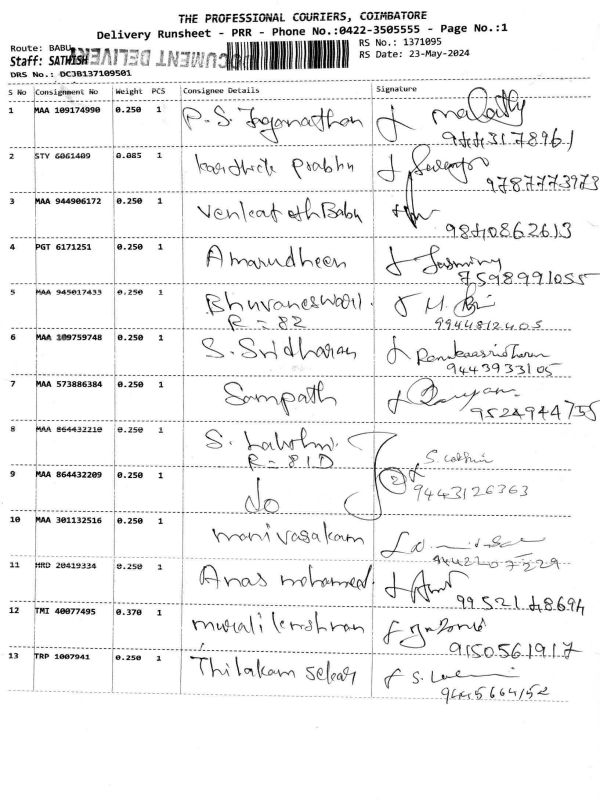 THE PROFESSIONAL COURIERS, COIMBATORE
Delivery Runsheet - PRR - Phone No.:0422-3505555 - Page No.:1
Route: BABU
RS No.: 1371095
Staff: SATHISH
RS Date: 23-May-2024
DOCUMENT DELIVERY
DRS No.: DCJB137109501
S No Consignment No Weight PCS Consignee Details Signature
1 MAA 109174990 0.250 1 P.S. Jaganathan malathy
9443178961
2 STY 6061409 0.085 1 Karthick Prabhu
9787773973
3 MAA 944906172 0.250 1 Venkatesh Babu
9840862613
4 PGT 6171251 0.250 1 Amarudheen
7598991055
5 MAA 945017433 0.250 1 Bhuvaneswari
R = 82
9944812405
6 MAA 109759748 0.250 1 S. Sridharan
9443933105
7 MAA 573886384 0.250 1 Sampath
9524944755
8 MAA 864432210 0.250 1 S. Lakshmi
R = 81.D
9 MAA 864432209 0.250 1 do 2
9443126363
10 MAA 301132516 0.250 1 manivasakam
9442207529
11 HRD 20419334 0.250 1 Anas mohamed
9952148694
12 TMI 40077495 0.370 1 murali krishnan
9150561917
13 TRP 1007941 0.250 1 Thilakam Sekar
9445664152